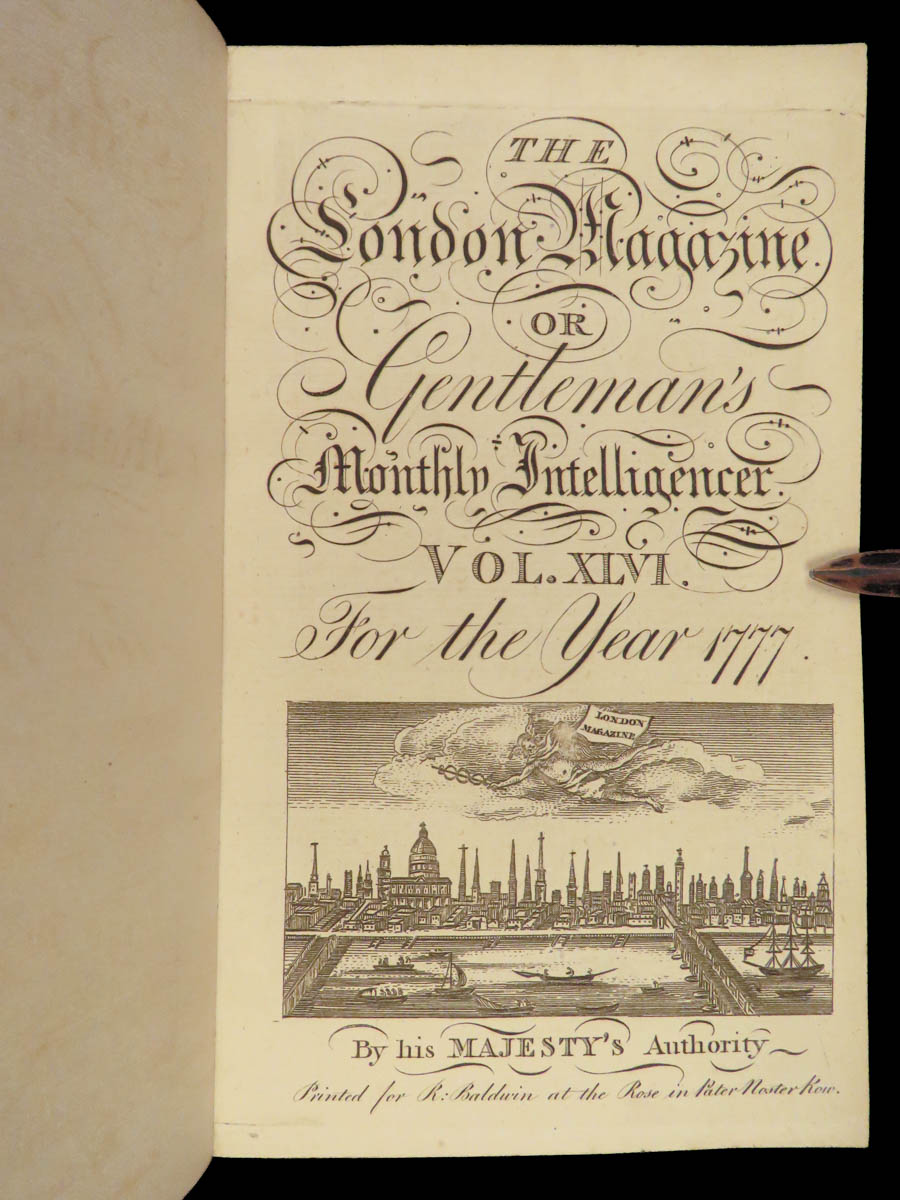 THE
London Magazine.
OR
Gentleman's
Monthly Intelligencer.
VOL. XLVI.
For the Year 1777.
LONDON
MAGAZINE
By his MAJESTY'S Authority
Printed for R: Baldwin at the Rose in Pater Noster Row.